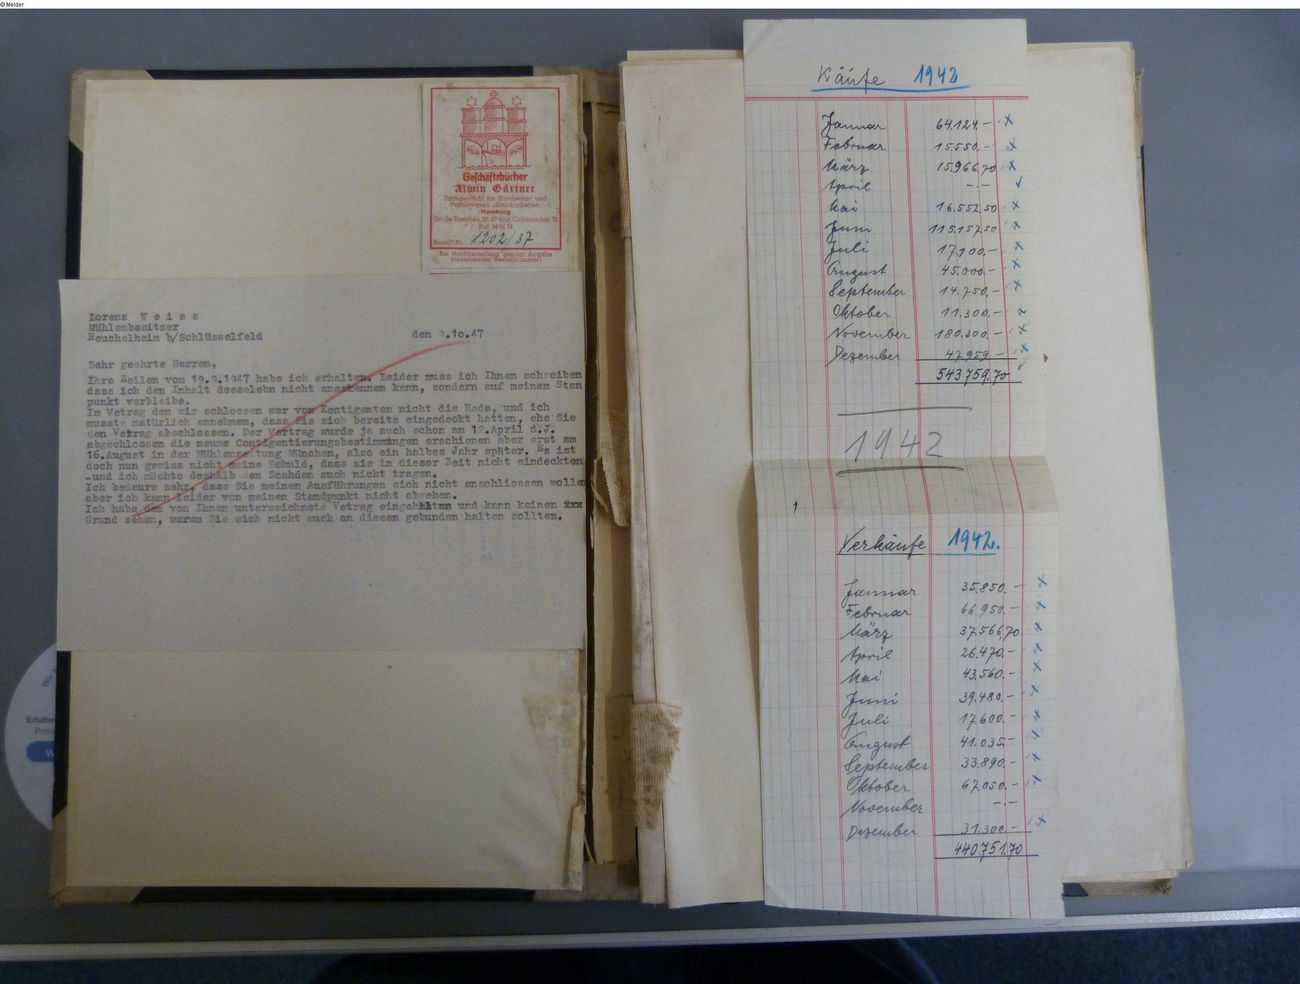 © Melder
Geschäftsbücher
Alwin Gärtner
Fachgeschäft für Bürobedarf und
Papierwaren · Drucksachen
Hamburg
Große Bleichen 23-27 und Colonnaden 70
Ruf 34 14 34
Bestell-Nr. 1202/37
Bei Nachbestellung genügt Angabe
vorstehender Bestellnummer!
Lorenz Weiss
Mühlenbesitzer
Heuchelheim b/Schlüsselfeld
den .10.47
Sehr geehrte Herren,
Ihre Zeilen vom 19.9.1947 habe ich erhalten. Leider muss ich Ihnen schreiben
dass ich den Inhalt desselebn nicht anerkennen kann, sondern auf meinem Stan
punkt verbleibe.
Im Vetrag den wir schlossen war von Kontigenten nicht die Rede, und ich
musste natürlich annehmen, dass Sie sich bereits eingedeckt hatten, ehe Sie
den Vetrag abschlossen. Der Vertrag wurde ja auch schon am 12.April d.J.
abgeschlossen die neuen Contigentierungsbestimmungen erschienen aber erst am
16.August in der Mühlenzeitung München, also ein halbes Jahr später. Es ist
doch nun gewiss nicht meine Schuld, dass sie in dieser Zeit nicht eindeckten
-und ich möchte deshalb den Scahden auch nicht tragen.
Ich bedaure sehr, dass Sie meinen Ausführungen sich nicht anschliessen wollen
aber ich kann leider von meinen Standpunkt nicht abgehen.
Ich habe den von Ihnen unterzeichnete Vetrag eingehalten und kann keinen
Grund sehen, warum Sie sich nicht auch an diesen gebunden halten sollten.
Käufe 1942
Januar 64.124.- x
Februar 15.550.- x
März 15.966,70 x
April -.- ✓
Mai 16.552,50 x
Juni 115.157,50 x
Juli 17.100.- x
August 45.000.- x
September 14.750.- x
Oktober 11.300.- x
November 180.300.- x
Dezember 47.959.- x
543759.70
1942
1
Verkäufe 1942.
Januar 35.850.- x
Februar 66.950.- x
März 37.566,70 x
April 26.470.- x
Mai 43.560.- x
Juni 39.480.- x
Juli 17.600.- x
August 41.035.- x
September 33.890.- x
Oktober 67.050.- x
November -.-
Dezember 31.300.- x
440751.70